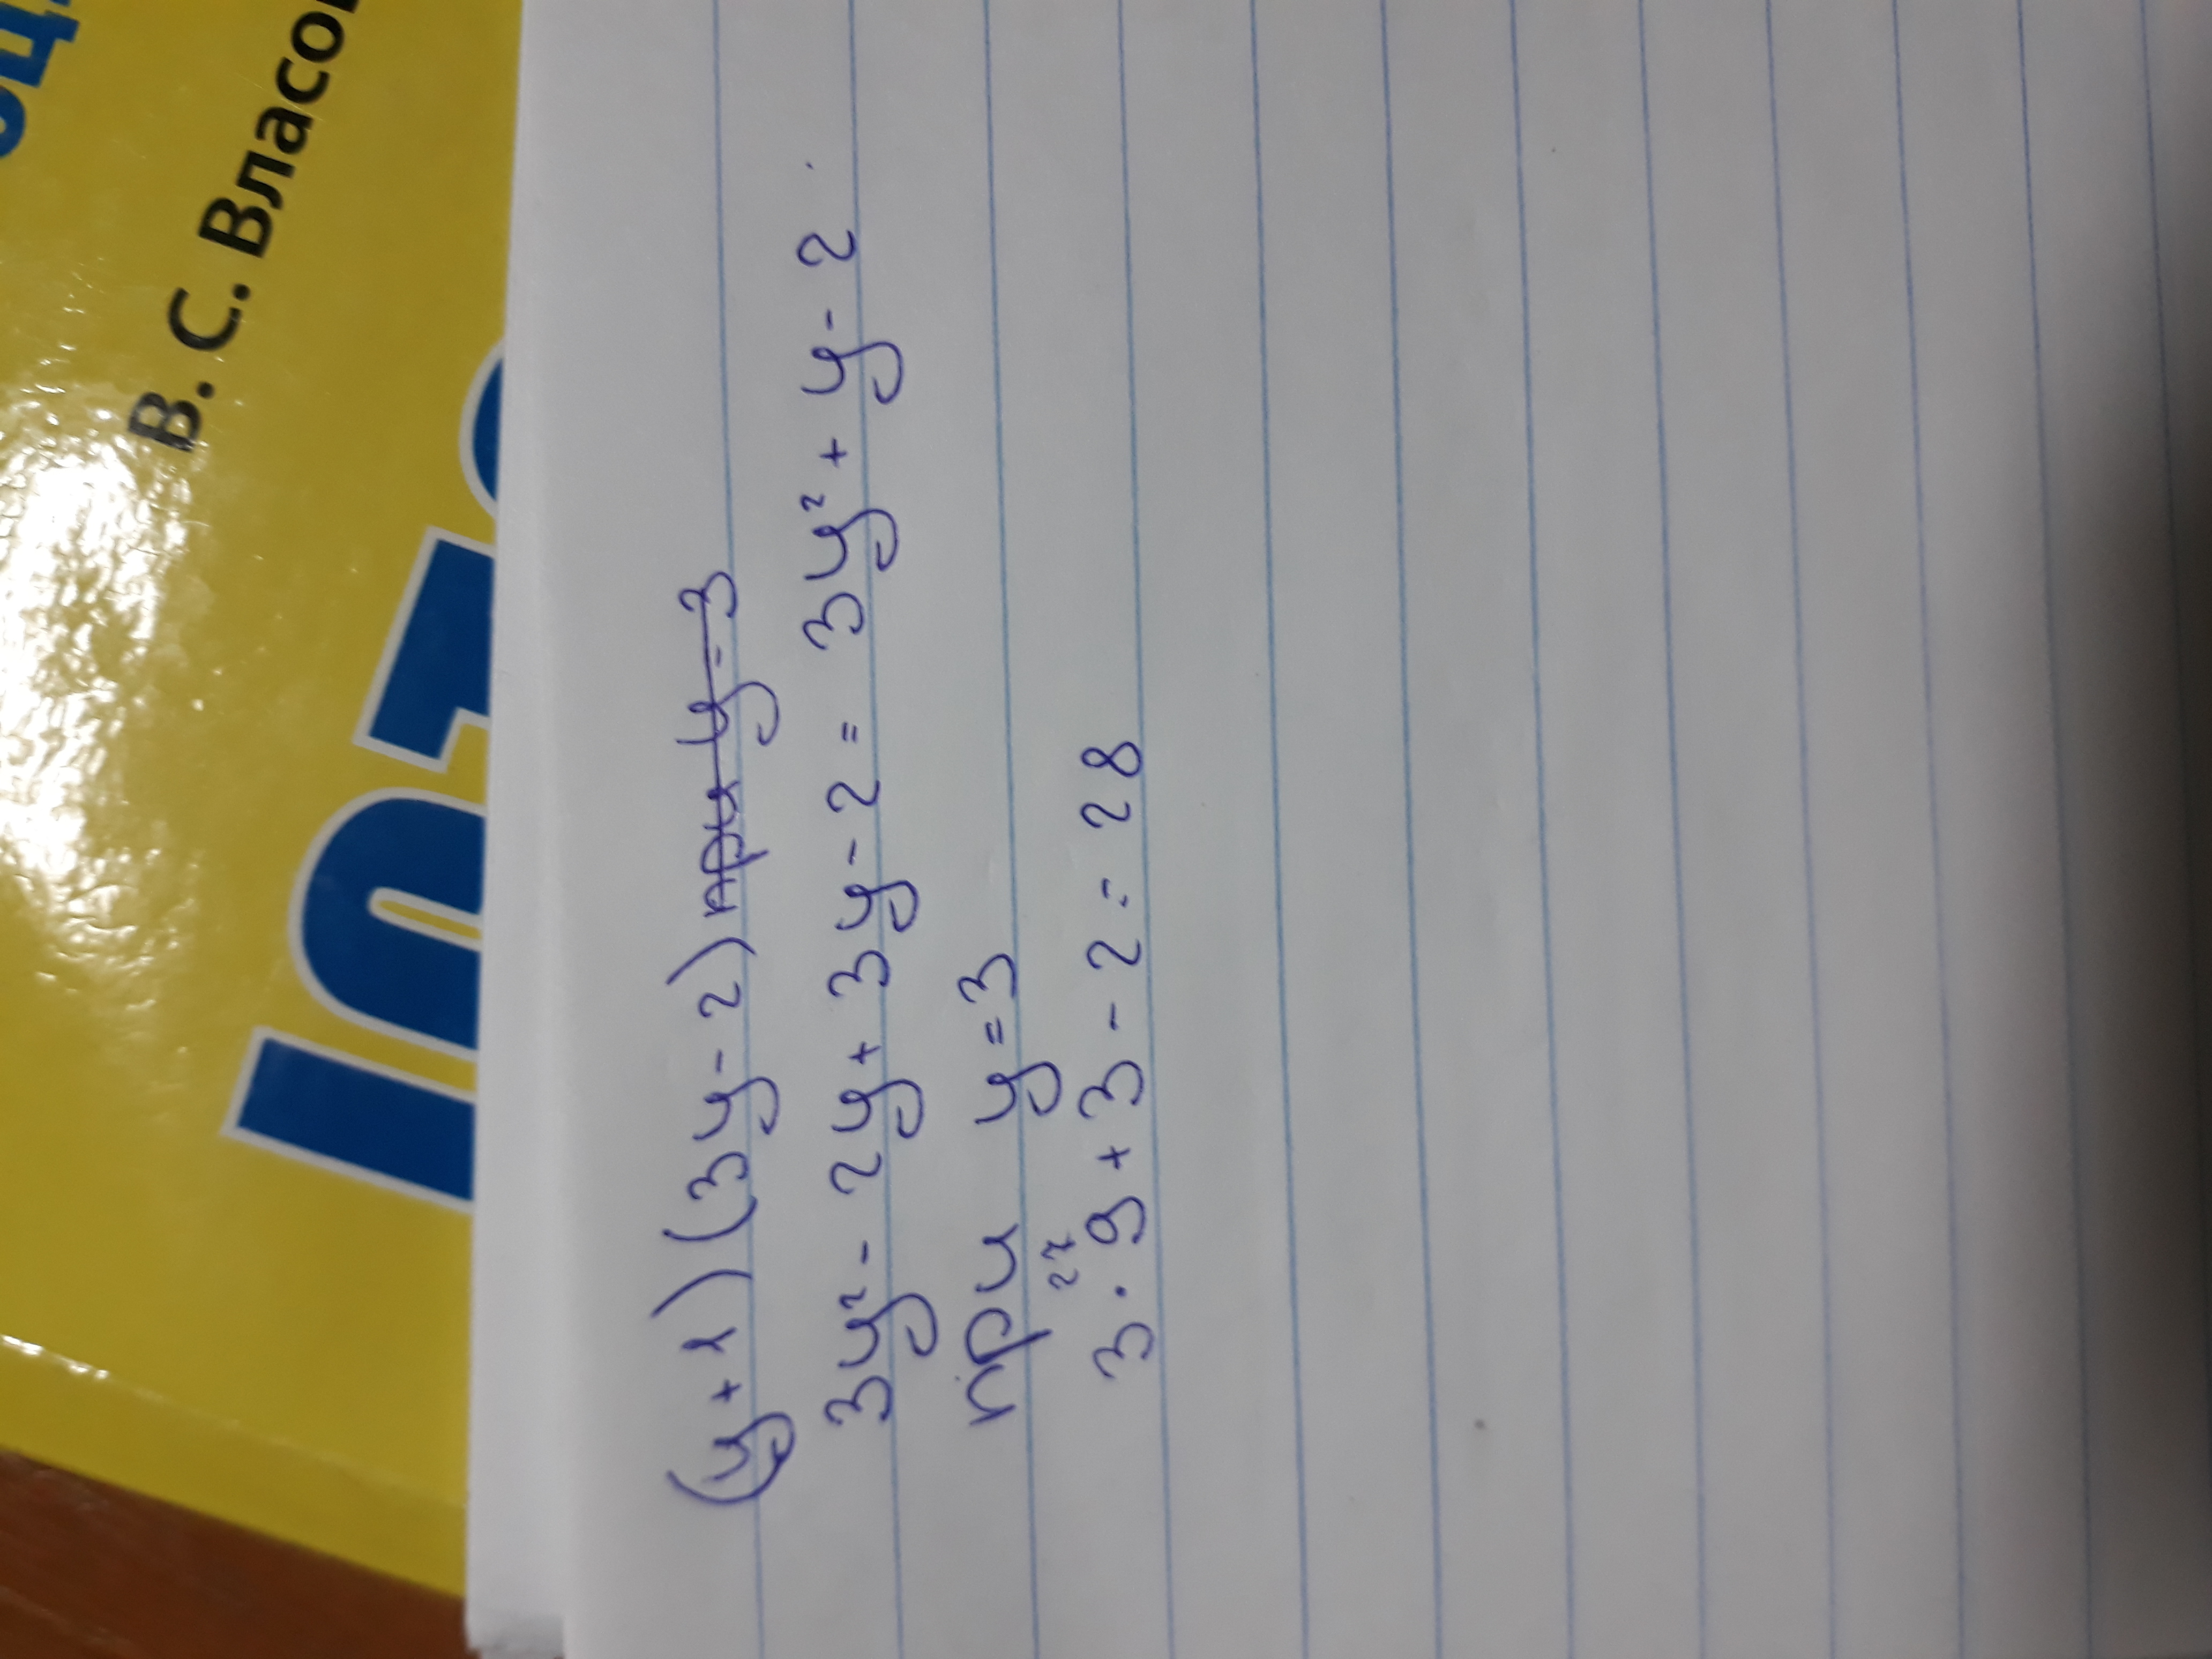 В. С. Власо
(y+1)(3y-2) при y=3
3y²-2y+3y-2= 3y²+y-2
при y=3
27
3·9+3-2=28